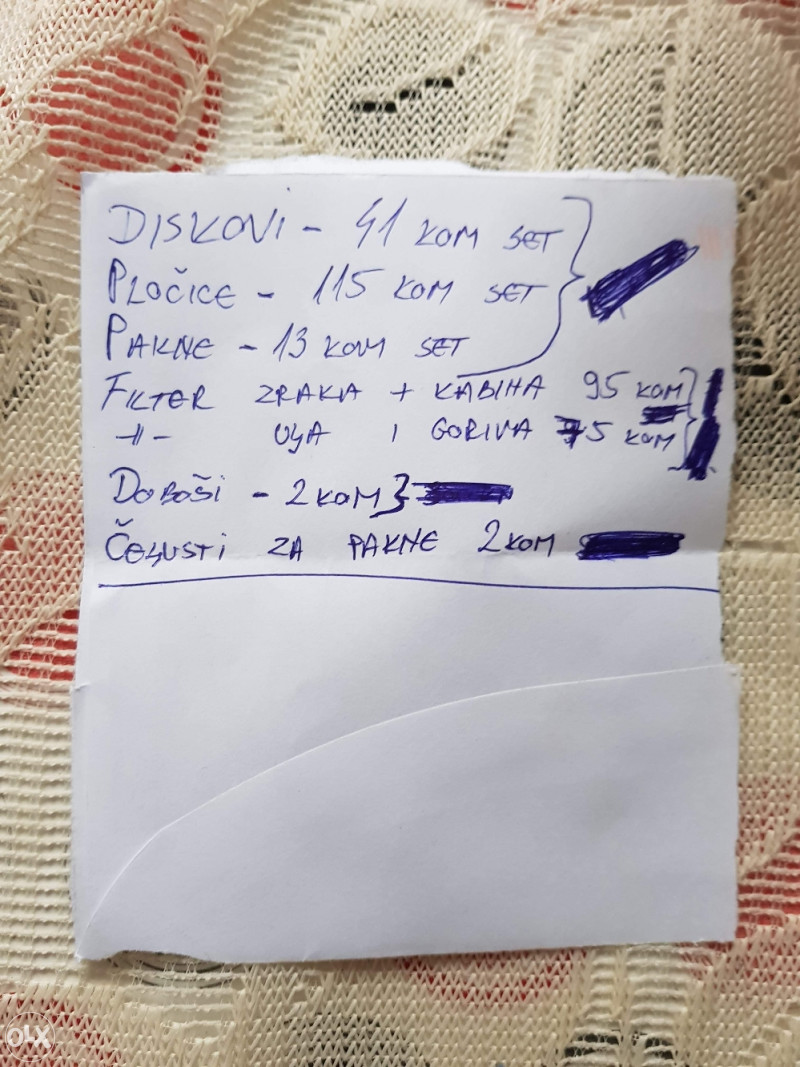 DISKOVI - 41 KOM SET
PLOČICE - 115 KOM SET
PAKNE - 13 KOM SET
FILTER ZRAKA + KABINA 95 KOM
-||- ULJA I GORIVA 75 KOM
DOBOŠI - 2 KOM
ČELJUSTI ZA PAKNE 2 KOM
OLX